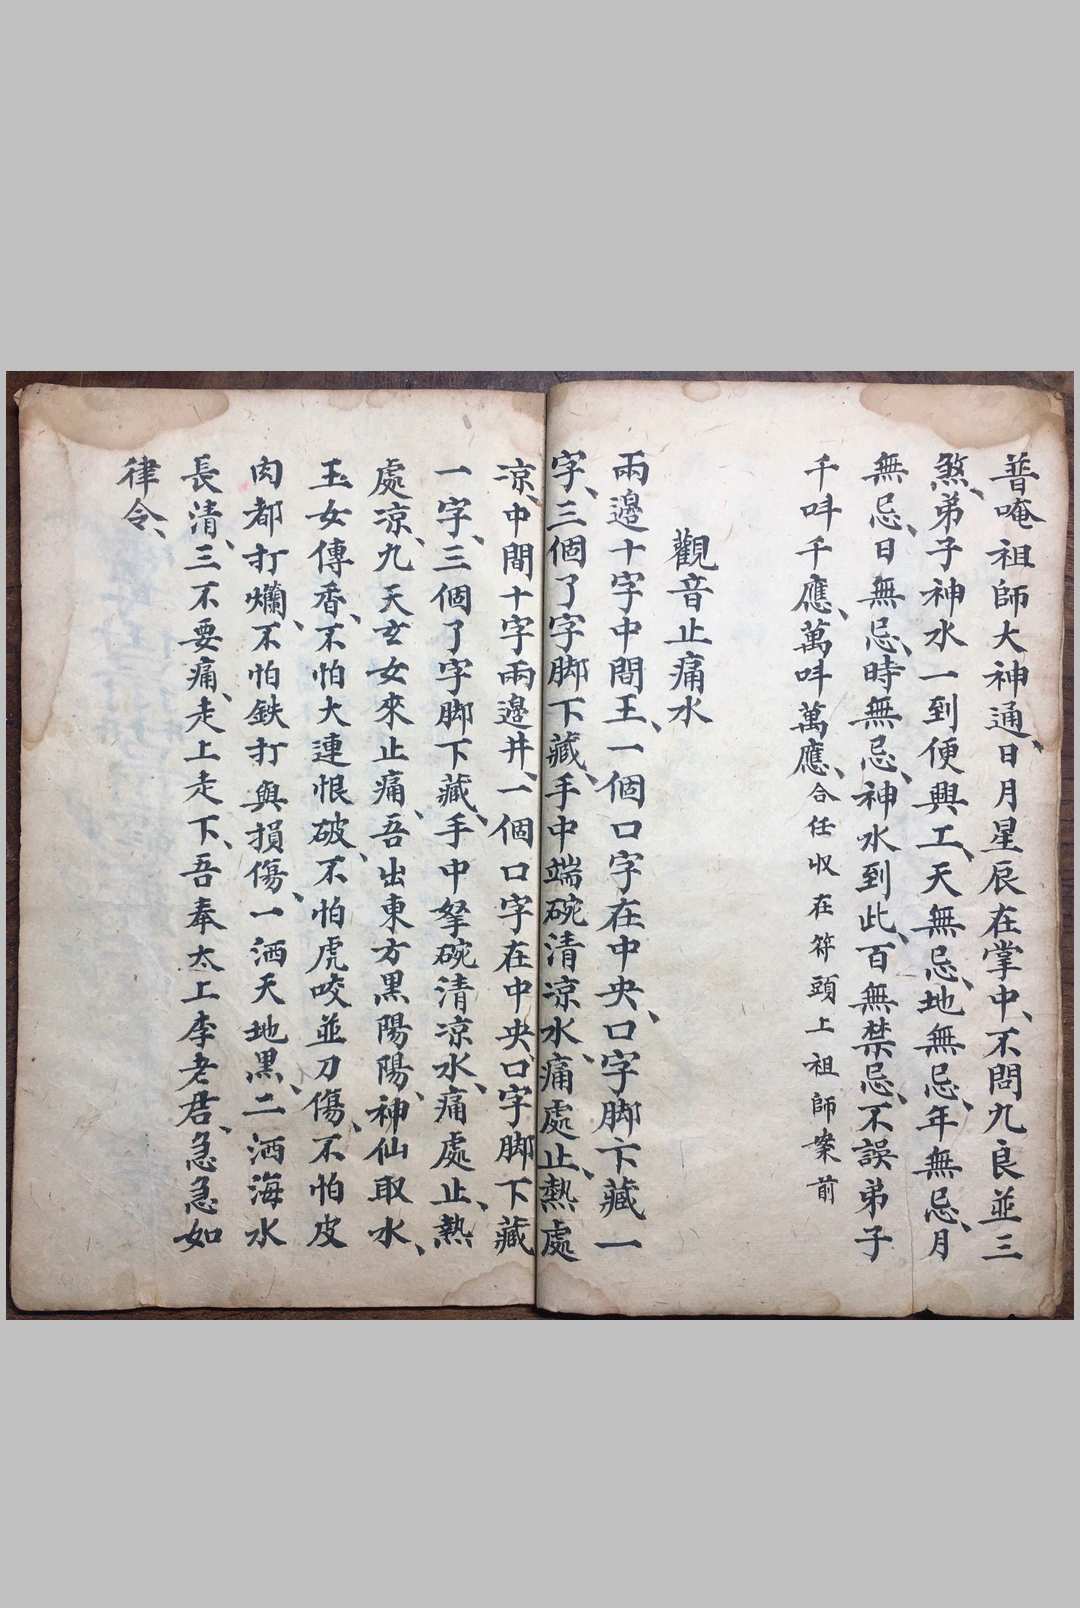 普唵祖師大神通、日月星辰在掌中、不問九良並三
煞、弟子神水一到便興工、天無忌、地無忌、年無忌、月
無忌、日無忌、時無忌、神水到此、百無禁忌、不誤弟子
千呌千應、萬呌萬應、合任收在符頭上祖師案前
觀音止痛水
兩邊十字中間王、一個口字在中央、口字脚下藏一
字、三個了字脚下藏、手中端碗清凉水、痛處止、熱處
凉、中間十字兩邊井、一個口字在中央、口字脚下藏
一字、三個了字脚下藏、手中拏碗清凉水、痛處止、熱
處凉、九天玄女來止痛、吾出東方黑陽陽、神仙取水、
玉女傳香、不怕大連恨破、不怕虎咬並刀傷、不怕皮
肉都打爛、不怕鉄打與損傷、一洒天地黑、二洒海水
長清、三不要痛、走上走下、吾奉太上李老君、急急如
律令、